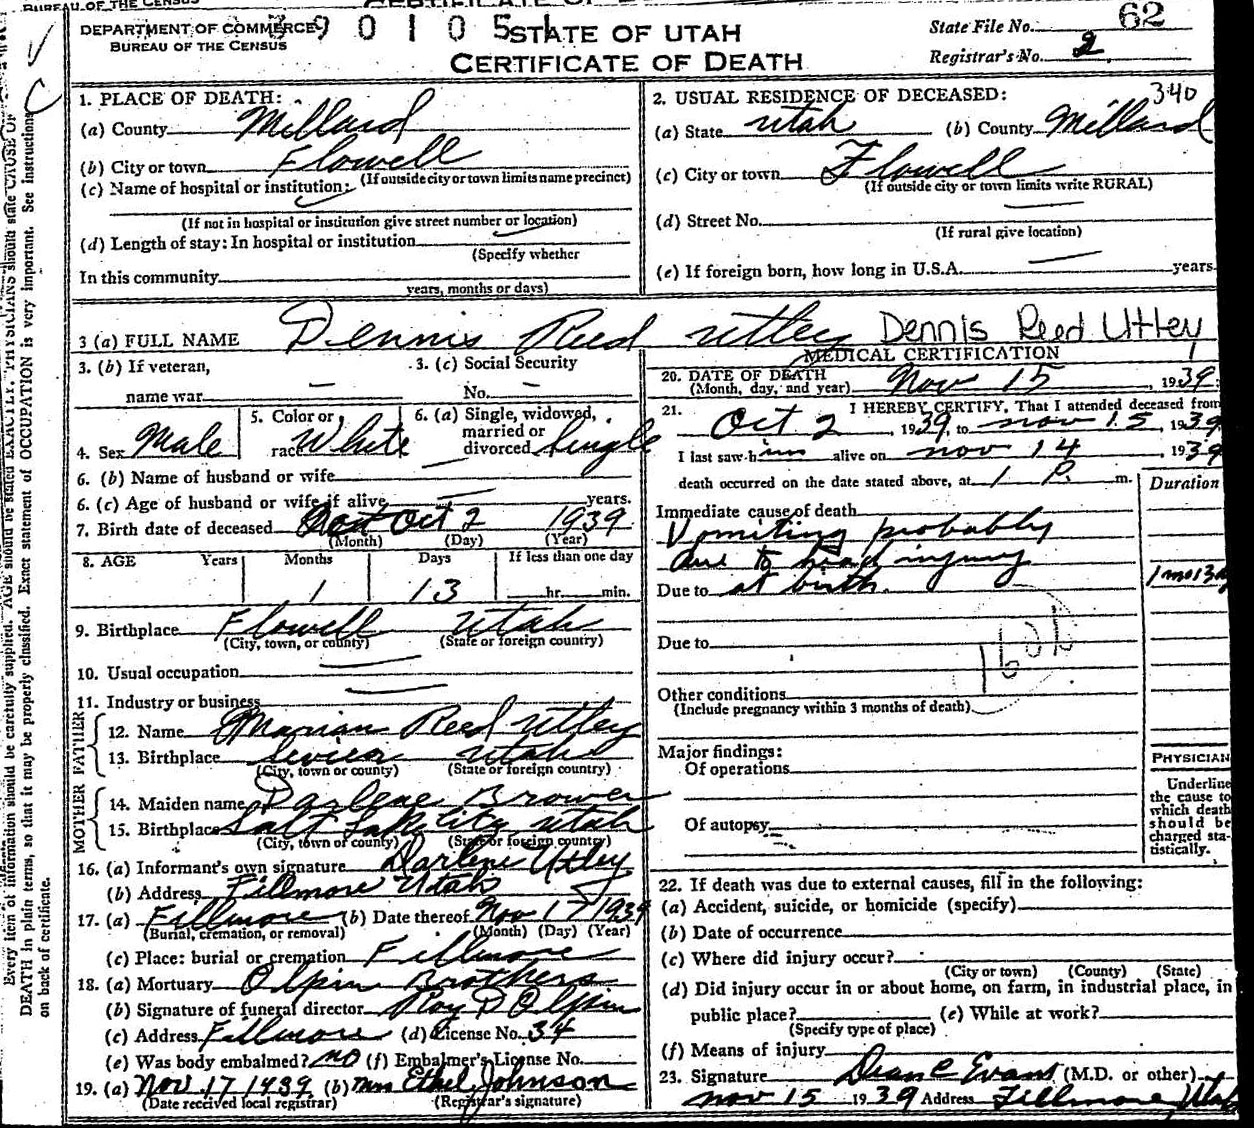 BUREAU OF THE CENSUS
DEPARTMENT OF COMMERCE
BUREAU OF THE CENSUS
3 9 0 1 0 5
STATE OF UTAH
CERTIFICATE OF DEATH
State File No. 62
Registrar's No. 2
1. PLACE OF DEATH:
(a) County Millard
(b) City or town Flowell
(If outside city or town limits name precinct)
(c) Name of hospital or institution:
(If not in hospital or institution give street number or location)
(d) Length of stay: In hospital or institution
(Specify whether
In this community
years, months or days)
2. USUAL RESIDENCE OF DECEASED: 340
(a) State Utah (b) County Millard
(c) City or town Flowell
(If outside city or town limits write RURAL)
(d) Street No.
(If rural give location)
(e) If foreign born, how long in U.S.A. years
3 (a) FULL NAME Dennis Reed Utley Dennis Reed Uttey
3. (b) If veteran,
name war
3. (c) Social Security
No.
4. Sex Male
5. Color or
race White
6. (a) Single, widowed,
married or
divorced Single
6. (b) Name of husband or wife
6. (c) Age of husband or wife if alive years.
7. Birth date of deceased Oct 2 1939
(Month) (Day) (Year)
8. AGE Years Months Days If less than one day
1 13 hr. min.
9. Birthplace Flowell Utah
(City, town, or county) (State or foreign country)
10. Usual occupation
11. Industry or business
FATHER
12. Name Marian Reed Utley
13. Birthplace Sevier Utah
(City, town or county) (State or foreign country)
MOTHER
14. Maiden name Darlene Brower
15. Birthplace Salt Lake City Utah
(City, town or county) (State or foreign country)
16. (a) Informant's own signature Darlene Utley
(b) Address Fillmore Utah
17. (a) Fillmore (b) Date thereof Nov 17 1939
(Burial, cremation, or removal) (Month) (Day) (Year)
(c) Place: burial or cremation Fillmore
18. (a) Mortuary Olpin Brothers
(b) Signature of funeral director Roy D Olpin
(c) Address Fillmore (d) License No. 34
(e) Was body embalmed? no (f) Embalmer's License No.
19. (a) Nov. 17 1939 (b) Mrs Ethel Johnson
(Date received local registrar) (Registrar's signature)
MEDICAL CERTIFICATION
20. DATE OF DEATH
(Month, day, and year) Nov 15, 1939
21. I HEREBY CERTIFY, That I attended deceased from
Oct 2, 1939, to Nov 15, 1939
I last saw him alive on Nov 14, 1939
death occurred on the date stated above, at 1 P. m.
Duration
Immediate cause of death
Vomiting probably
due to head injury
Due to at birth. 1 mo 13
Due to
160b
Other conditions
(Include pregnancy within 3 months of death)
Major findings:
Of operations
Of autopsy
PHYSICIAN
Underline
the cause to
which death
should be
charged sta-
tistically.
22. If death was due to external causes, fill in the following:
(a) Accident, suicide, or homicide (specify)
(b) Date of occurrence
(c) Where did injury occur?
(City or town) (County) (State)
(d) Did injury occur in or about home, on farm, in industrial place, in
public place? (e) While at work?
(Specify type of place)
(f) Means of injury
23. Signature Dean C Evans (M.D. or other)
Nov 15 1939 Address Fillmore, Utah
Every item of information should be carefully supplied. AGE should be stated EXACTLY. PHYSICIANS should state CAUSE OF
DEATH in plain terms, so that it may be properly classified. Exact statement of OCCUPATION is very important. See instructions
on back of certificate.